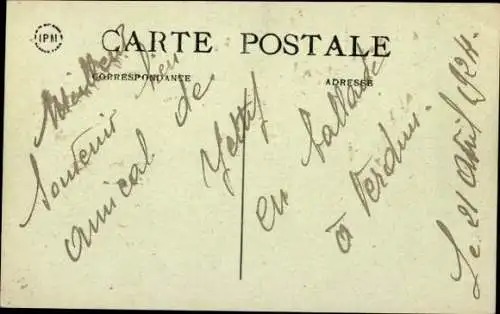 IPM
CARTE POSTALE
CORRESPONDANCE
ADRESSE
Meilleur
Souvenir bien
amical de
en ballade
à Verdun.
Le 21 Avril 1924.